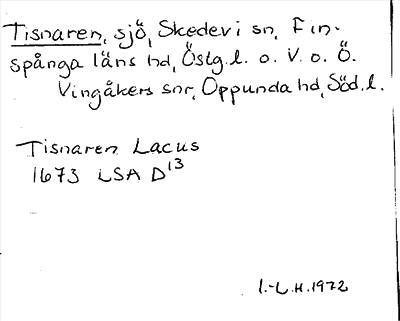 Tisnaren, sjö, Skedevi sn, Fin-
spånga läns hd, Östg.l. o. V. o. Ö.
Vingåkers snr, Oppunda hd, Söd.l.
Tisnaren Lacus
1673 LSA D13
I.-L.H.1972